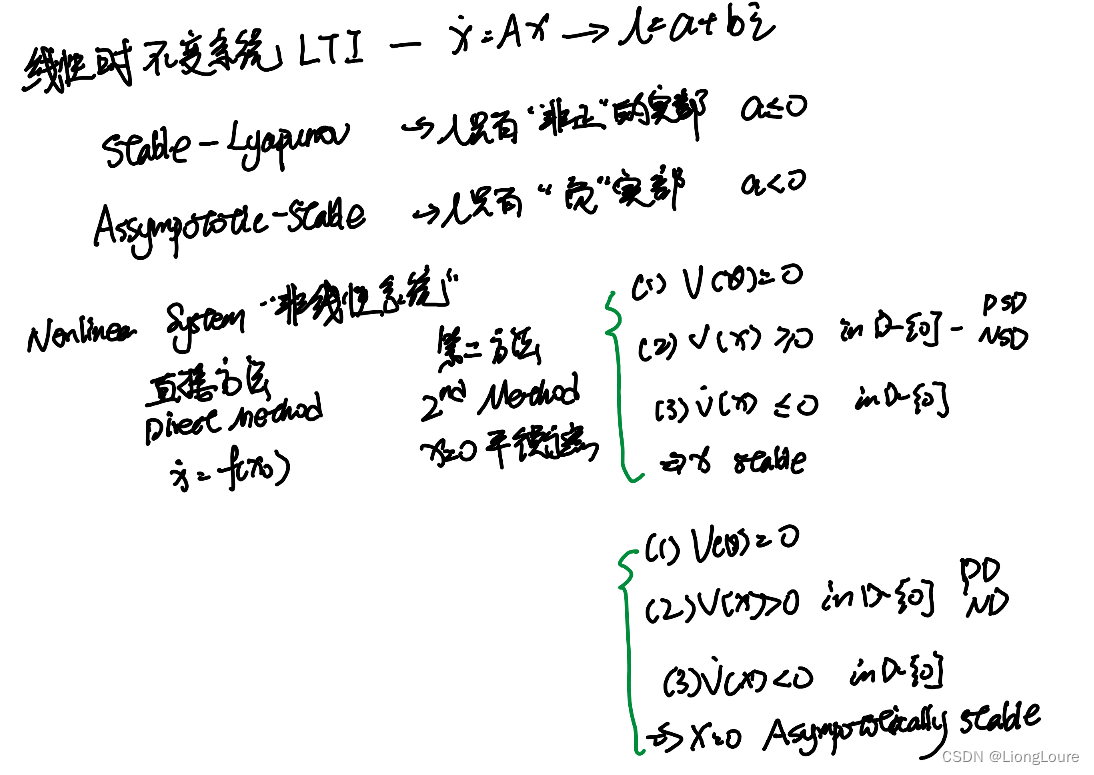 线性时不变系统 LTI — ẋ=Ax → λ=a+bi
Stable-Lyapunov → λ只有“非正”的实部 a≤0
Assympototic-Stable → λ只有“负”实部 a<0
Nonlinear System “非线性系统”
直接方法
Direct Method
ẋ=f(x)
第二方法
2nd Method
x=0 平衡点
(1) V(0)=0
(2) V(x)≥0 in D-{0} - PSD
NSD
(3) V̇(x)≤0 in D-{0}
⇒x stable
(1) V(0)=0
(2) V(x)>0 in D-{0} PD
ND
(3) V̇(x)<0 in D-{0}
⇒ x=0 Asympototically stable
CSDN @LiongLoure